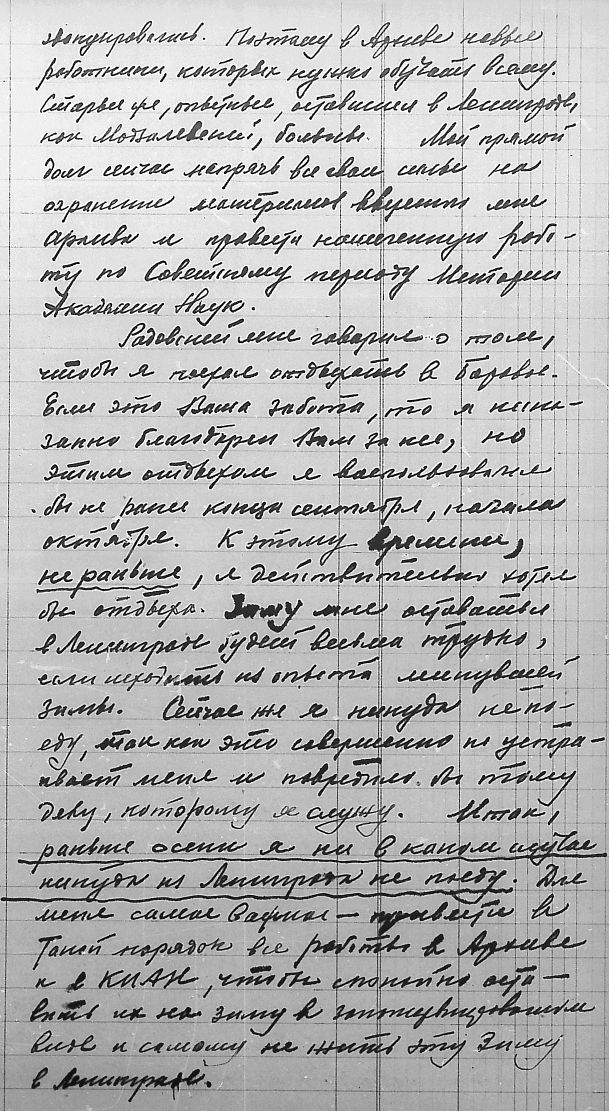 эвакуировались. Поэтому в Архиве новые
работники, которых нужно обучать всему.
Старые же, опытные, оставшиеся в Ленинграде,
как Модзалевский, больные. Мой прямой
долг сейчас напрячь все свои силы на
охранение материалов вверенного мне
Архива и провести намеченную рабо-
ту по Советскому периоду Истории
Академии Наук.
Радовский мне говорил о том,
чтобы я поехал отдыхать в Боровое.
Если это Ваша забота, то я неска-
занно благодарен Вам за нее, но
этим отдыхом я воспользовался
бы не ранее конца сентября, начала
октября. К этому времени,
не раньше, я действительно хотел
бы отдыха. Зиму мне оставаться
в Ленинграде будет весьма трудно,
если исходить из опыта минувшей
зимы. Сейчас же я никуда не по-
еду, так как это совершенно не устра-
ивает меня и повредило бы тому
делу, которому я служу. Итак,
раньше осени я ни в каком случае
никуда из Ленинграда не поеду. Для
меня самое важное — привести в
такой порядок все работы в Архиве
и в КИАН, чтобы спокойно оста-
вить их на зиму в законсервированном
виде и самому не жить эту зиму
в Ленинграде.